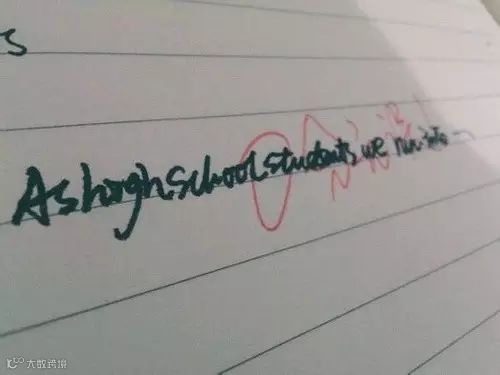 s
As high school students, we run into
大数跨境